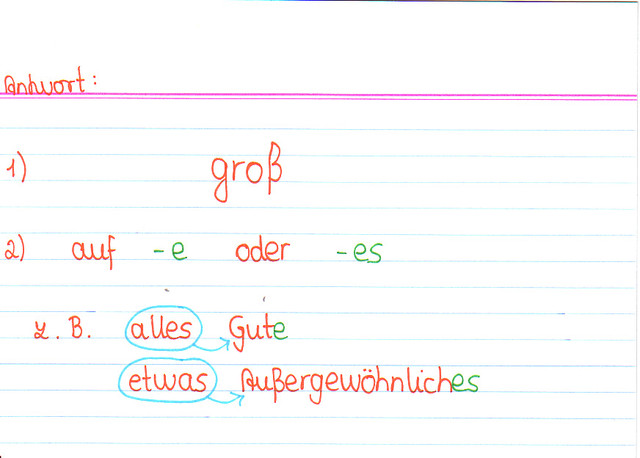 Antwort:
1) groß
2) auf -e oder -es
z. B. alles Gute
etwas Außergewöhnliches